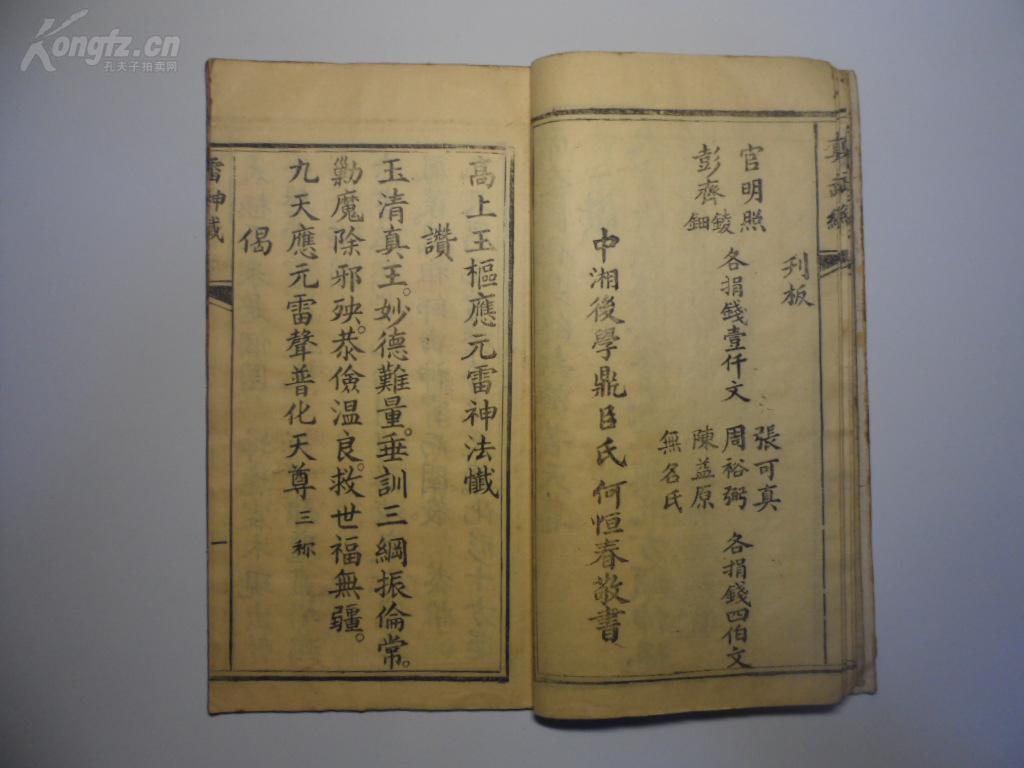 Kongfz.cn
孔夫子拍卖网
列板
官明照
彭齊鈿錂
各捐錢壹仟文
張可真
周裕弼
陳益原
無名氏
各捐錢四伯文
中湘後學鼎臣氏何恒春敬書
高上玉樞應元雷神法懺
讚
玉清真王。妙德難量。垂訓三綱振倫常。
勦魔除邪殃。恭儉温良。救世福無疆。
九天應元雷聲普化天尊三称
偈
雷神懺
一